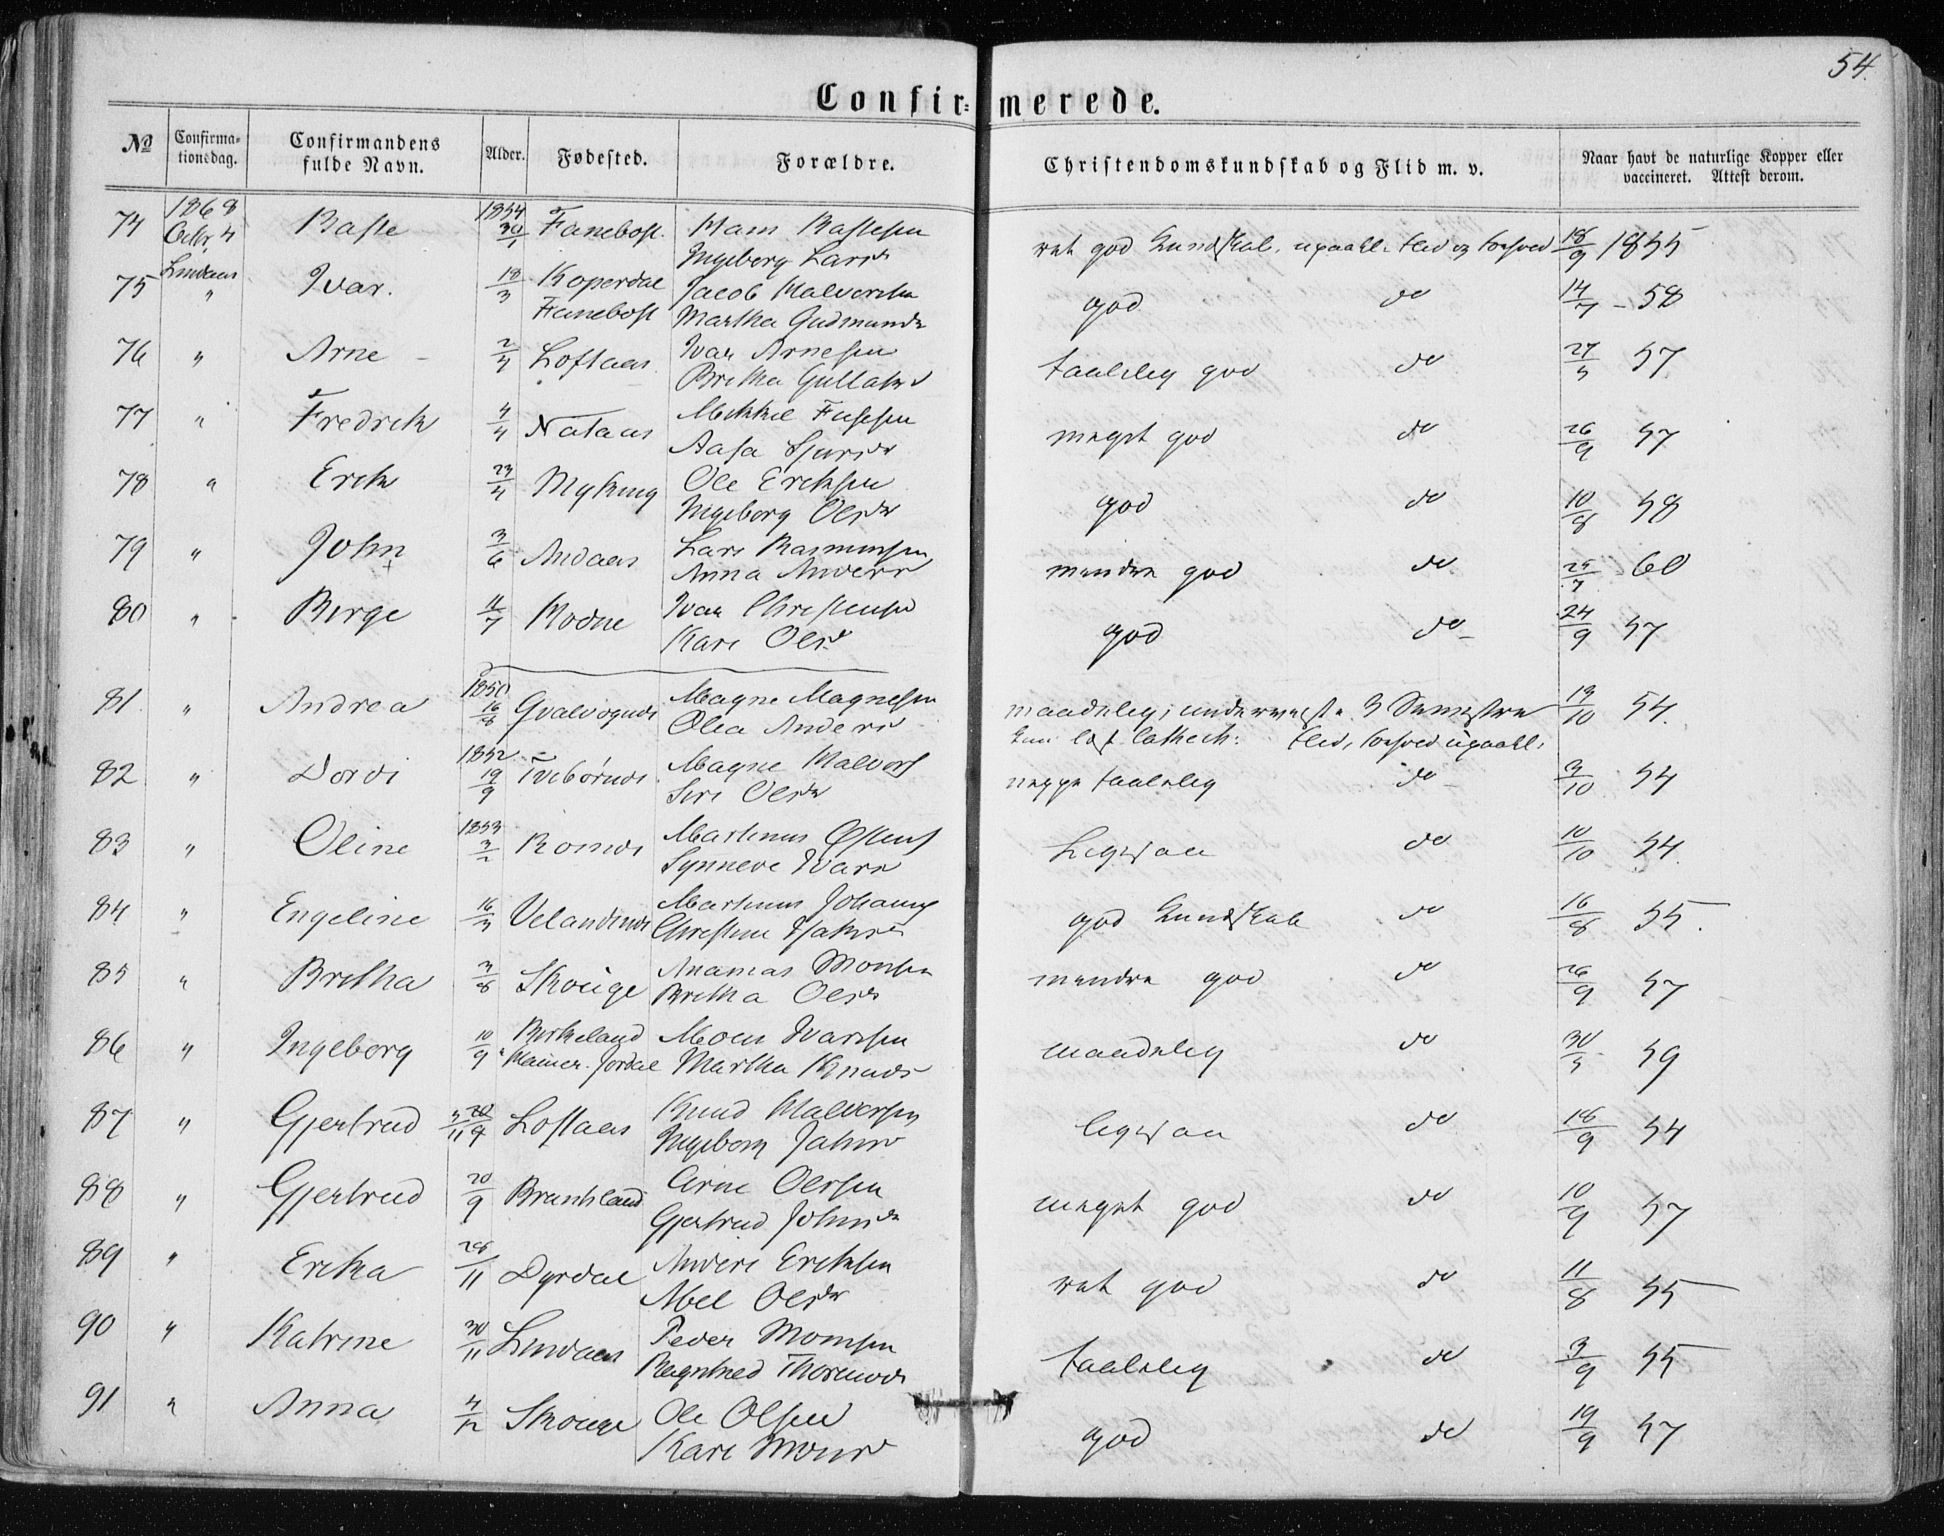 54.
Confir= merede.
No Confirma-tionsdag. Confirmandens fulde Navn. Alder. Fødested. Forældre. Christendomskundskab og Flid m. v. Naar havt de naturlige Kopper eller vaccineret. Attest derom.
74 1868 Octbr 4 Lindaas Baste 1854 30/1 Fanebost. Hans Bastesen Ingeborg Larsd ret god Kundskab, upaakl. Flid og Forhold 18/9 1855
75 " Ivar. 18/3 Koperdal Fanebost Jacob Halvorsen Martha Gudmundsdr god do 14/7 - 58
76 " Arne - 2/4 Loftaas Ivar Arnesen Britha Gullaksd taalelig god do 27/5 57
77 " Fredrik 4/4 Nataas Mikkel Fasesen Aasa Sjursdr meget god do 26/9 57
78 " Erik 23/4 Myking Ole Eriksen Ingeborg Olsdr god do 10/8 58
79 " John 3/6 Andaas Lars Rasmussen Anna Andersd mindre god do 25/7 60
80 " Birge 11/7 Hodne Ivar Christensen Kari Olsd god do 24/9 57
81. " Andrea 1850 16/8 Qvalvognds Magne Magnesen Olea Andersd maadelig; underviist 3 Semestre 13/10 54.
kun læst Cathech: Flid, Forhold upaakl.
82 " Dordi 1852 19/9 Tvebørnds Magne Halvors Siri Olsdr neppe taalelig do 9/10 54
83 " Oline 1853 3/2 Bornds Martinus Østens Synneve Ivarsd ligesaa do 10/10 54.
84 " Engeline 16/3 Velandsnds Martinus Johannes Christine Isaksd god Kundskab do 16/8 55.
85 " Britha 3/8 Skouge Ananias Monsen Britha Olsdr mindre god do 26/9 57
86 " Ingeborg 10/9 Birkeland Hamer. Jordal Moens Ivarsen Martha Knuds maadelig do 30/5 59
87 " Gjertrud 20/9 Loftaas Knud Halvorsen Ingeborg Jakosd ligesaa do 18/9 54
88 " Gjertrud 20/9 Bruntland Arne Olssen Gjertrud Johnsdr meget god do 10/9 57
89 " Erika 28/11 Dyrdal Anders Eriksen Abel Olsdr ret god do 11/8 55
90 " Katrine 30/11 Lindaas Peder Monssen Ragnhild Thormods taalelig do 3/9 55
91 " Anna 4/12 Skouge Ole Olsen Kari Monsd god do 19/9 57